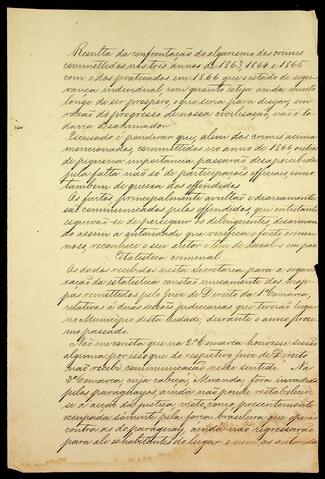 Resulta da confrontação do algarismo dos crimes
committidos nos tres annos de 1863, 1864 e 1865
com o dos praticados em 1866 que o estado de segu-
rança individual, com quanto esteja ainda muito
longe de ser prospero, o que sera para desejar, em
razão do progresso de nossa civilisação, não é to
davia desanimador.
Escusado é ponderar que, alem dos crimes acima
mencionados, committidos no anno de 1866 outros
de pequena importancia passarão desapercebidos
pela falta não só de participações officiaes como
tambem de queixa dos offendidos
Os furtos principalmente avultão e diariamente
são communicados pelos offendidos, que entretanto
esquivão-se de perseguir os delinquentes, desarman
do assim a autoridade que verifica o facto crimi-
noso, reconhece o seu autor e tem de deixal-o em paz
Estatistica criminal
Os dados recebidos nesta Secretaria para a organi-
zação da estatistica constão unicamente dos map-
pas remettidos pelo Juiz de Direito da 1ª Comarca,
relativos á duas sessões judiciarias que tiverão lugar
no Municipio desta Cidade, durante o anno proxi-
mo passado.
Não me consta que na 2ª Comarca houvesse sessão
alguma por isso que do respectivo Juiz de Direito
não recebi communicação nesse sentido. Na
3ª Comarca, cuja cabeça, Miranda, fora invadida
pelos paraguayos ainda não pôde restabelecer
se a acção da justiça visto, como presentemente
occupada sómente pela força brasileira que opera
contra as do paraguay, ainda não regressarão
para ali os habitantes do lugar e nem as autorida